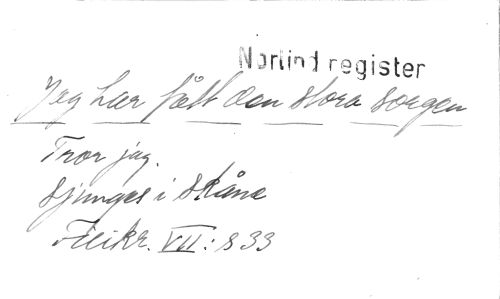 Norlind register
Jag har fått den stora sorgen
Tror jag.
Sjunges i Skåne
VII: S 33